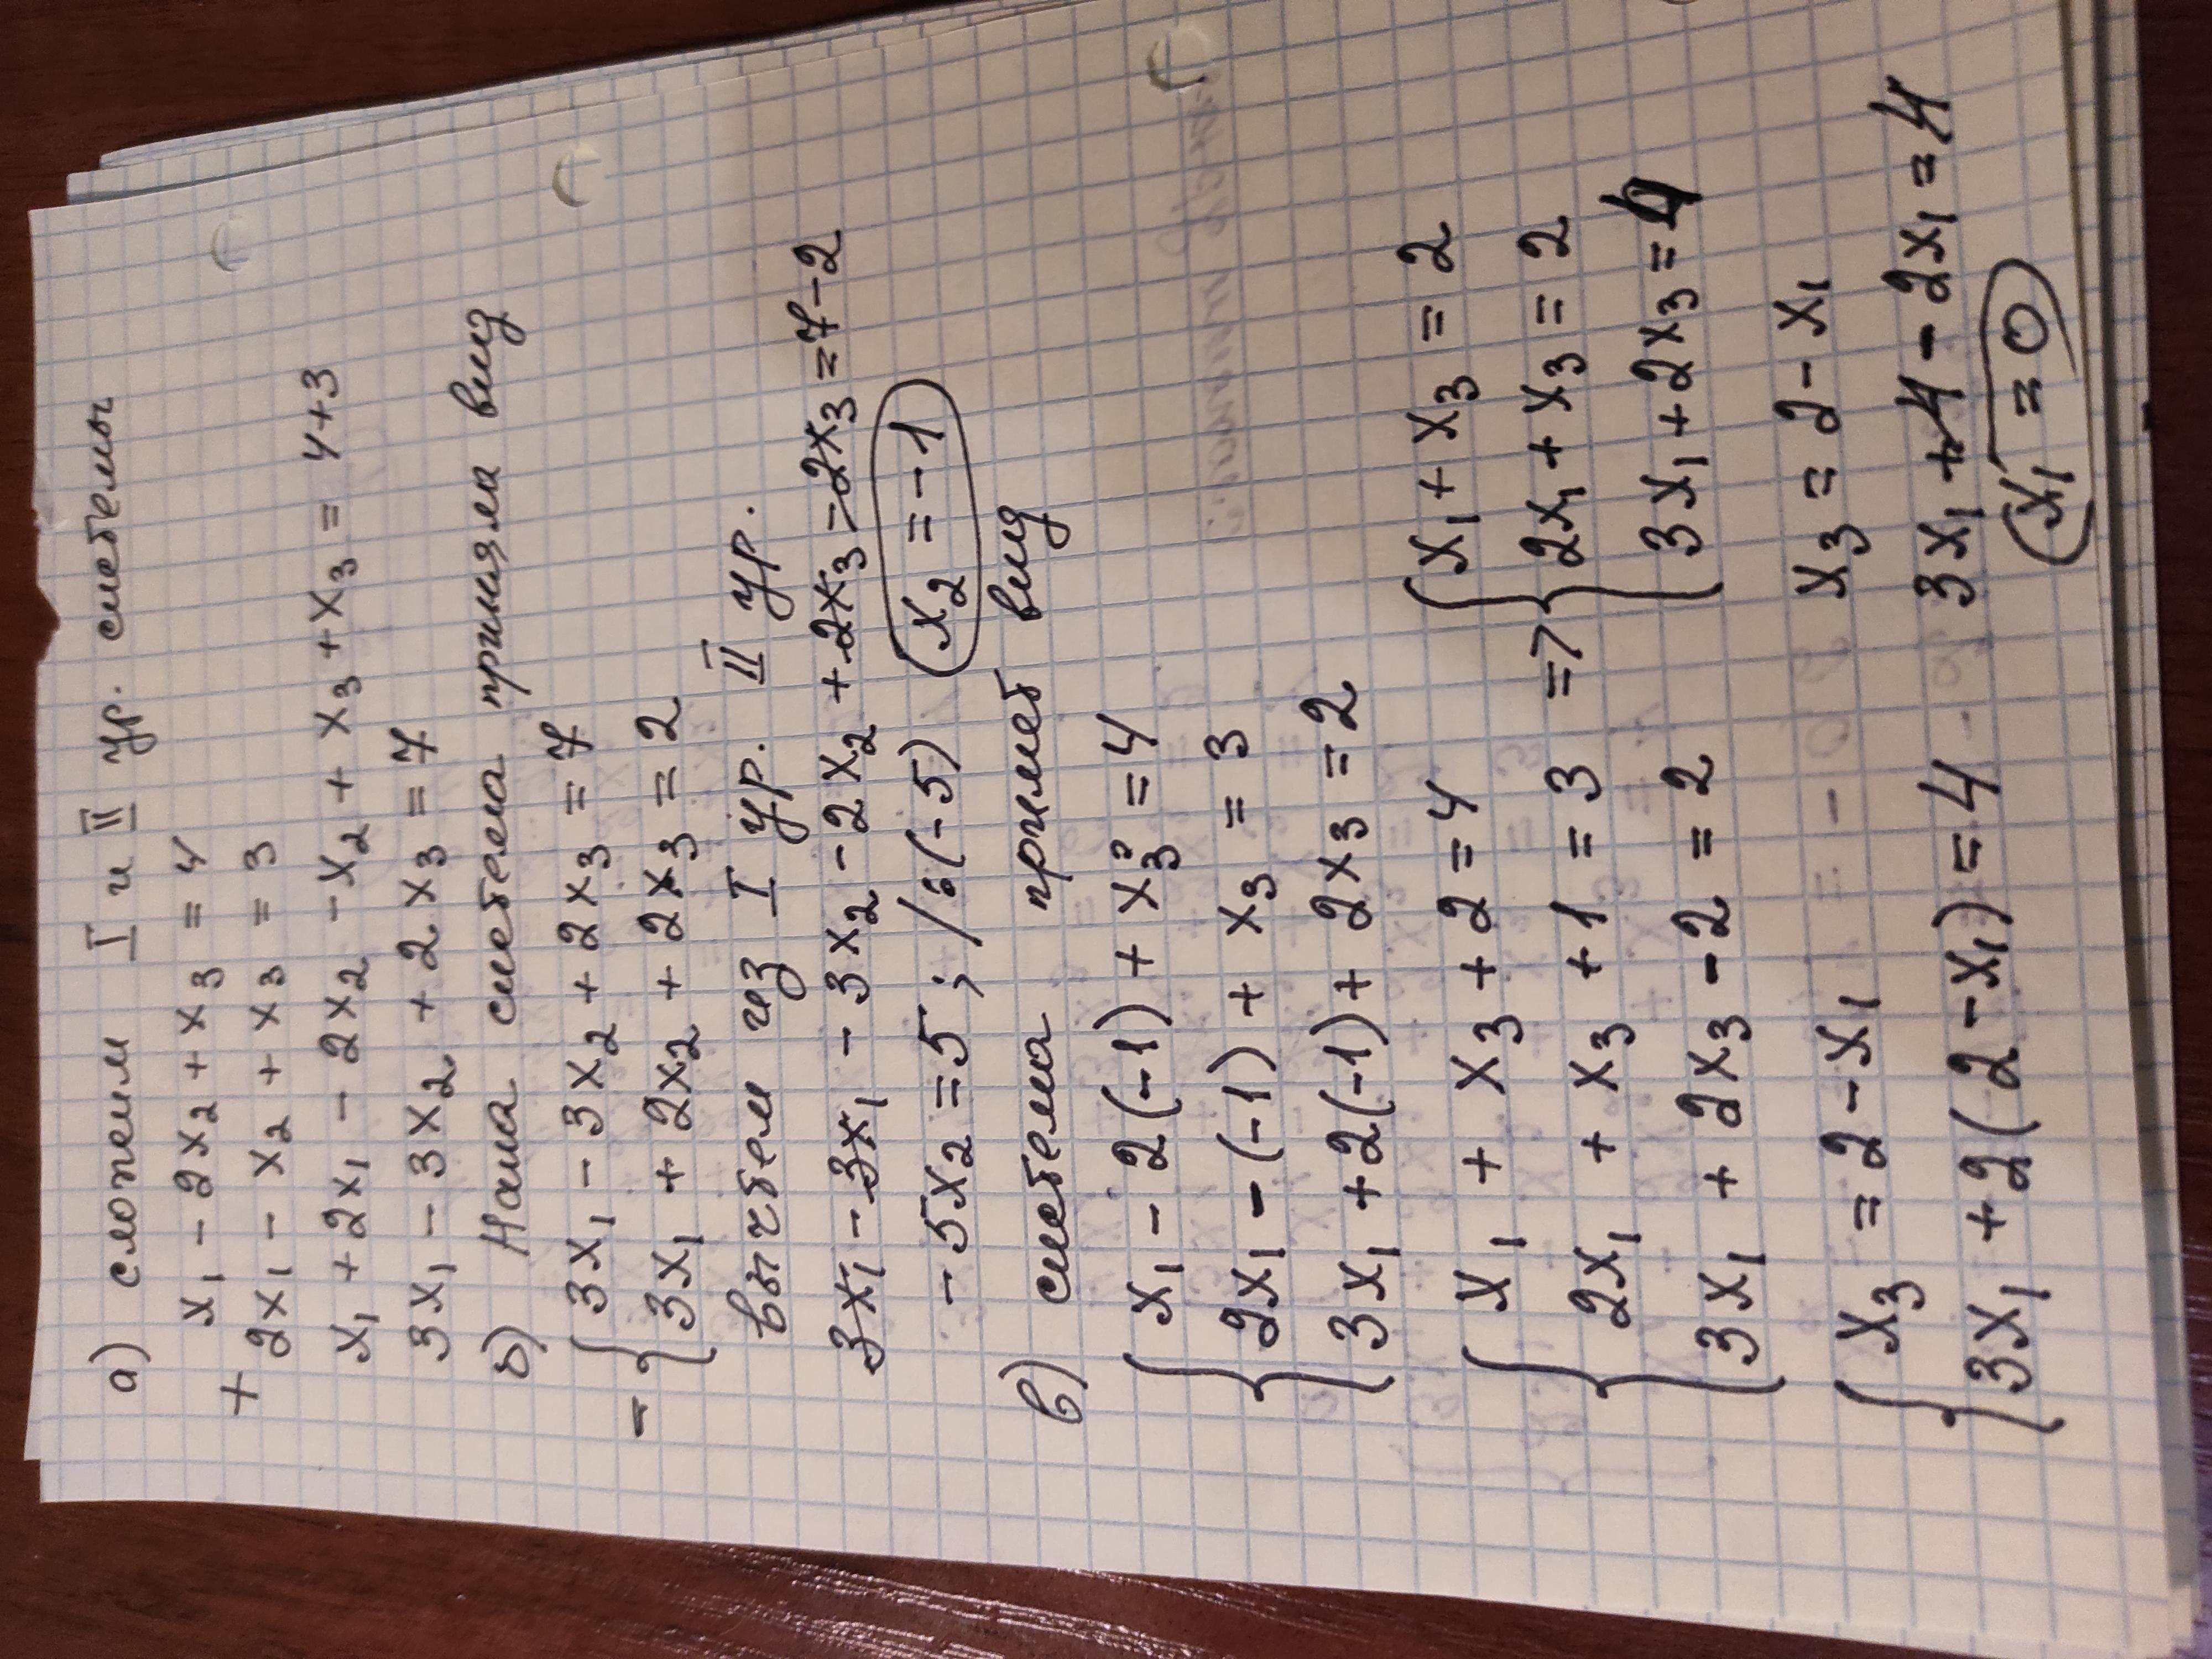 а) сложем I и II ур. системы
x₁ - 2x₂ + x₃ = 4
+
2x₁ - x₂ + x₃ = 3
x₁ + 2x₁ - 2x₂ - x₂ + x₃ + x₃ = 4+3
3x₁ - 3x₂ + 2x₃ = 7
б) Наша система приняла вид
- { 3x₁ - 3x₂ + 2x₃ = 7
3x₁ + 2x₂ + 2x₃ = 2
вычтем из I ур. II ур.
3x₁ - 3x₁ - 3x₂ - 2x₂ + 2x₃ - 2x₃ = 7-2
-5x₂ = 5 ; /:(-5) x₂ = -1
в) система примет вид
{ x₁ - 2(-1) + x₃ = 4
2x₁ - (-1) + x₃ = 3
3x₁ + 2(-1) + 2x₃ = 2
{ x₁ + x₃ + 2 = 4
2x₁ + x₃ + 1 = 3
3x₁ + 2x₃ - 2 = 2
=> { x₁ + x₃ = 2
2x₁ + x₃ = 2
3x₁ + 2x₃ = 4
{ x₃ = 2 - x₁
3x₁ + 2(2 - x₁) = 4
x₃ = 2 - x₁
3x₁ + 4 - 2x₁ = 4
x₁ = 0